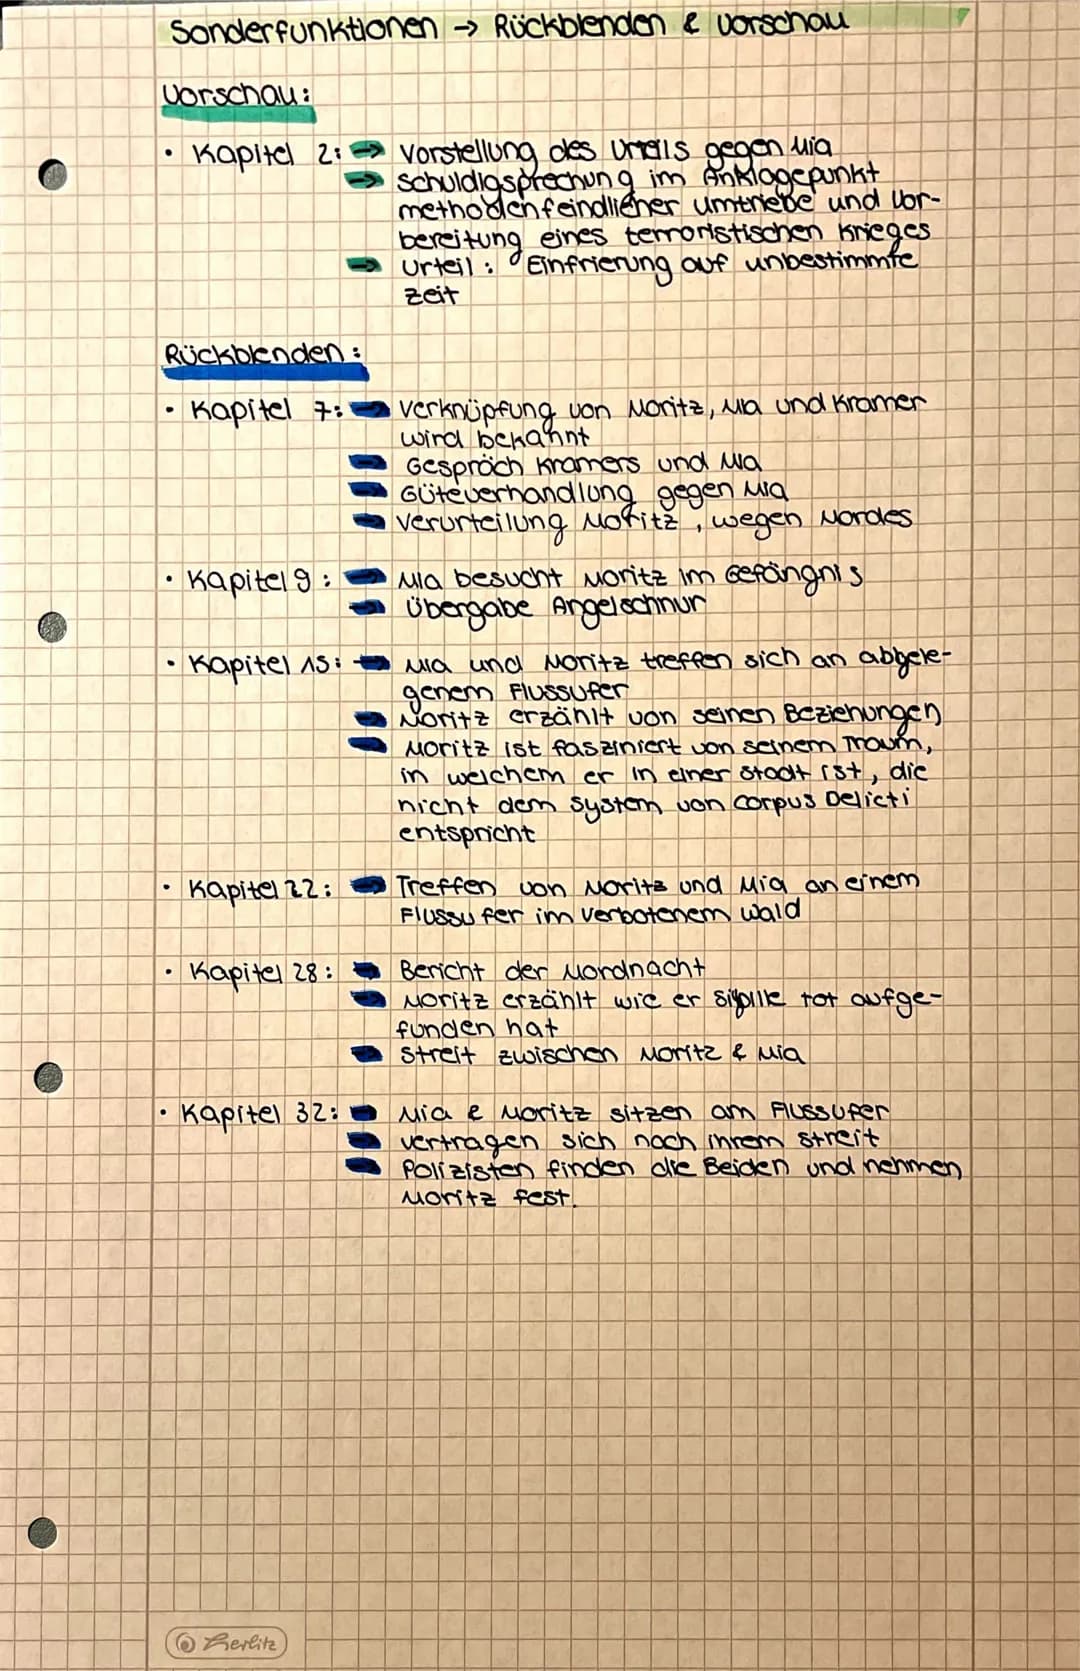 Sonderfunktionen → Rückblenden & Vorschau
Vorschau:
• Kapitel 2: → Vorstellung des Urteils gegen Mia
→ Schuldigsprechung im Anklagepunkt
methodenfeindlicher Umtriebe und Vor-
bereitung eines terroristischen Krieges
→ Urteil: Einfrierung auf unbestimmte
Zeit
Rückblenden:
• Kapitel 7: → Verknüpfung von Moritz, Mia und Kramer
wird bekannt
→ Gespräch Kramers und Mia
→ Güteverhandlung gegen Mia
→ Verurteilung Moritz, wegen Mordes
• Kapitel 9: → Mia besucht Moritz im Gefängnis
→ Übergabe Angelschnur
• Kapitel 15: → Mia und Moritz treffen sich an abgele-
genem Flussufer
→ Moritz erzählt von seinen Beziehungen
→ Moritz ist fasziniert von seinem Traum,
in welchem er in einer Stadt ist, die
nicht dem System von Corpus Delicti
entspricht
• Kapitel 22: → Treffen von Moritz und Mia an einem
Flussufer im verbotenem Wald
• Kapitel 28: → Bericht der Mordnacht
→ Moritz erzählt wie er Sibille tot aufge-
funden hat
→ Streit zwischen Moritz & Mia
• Kapitel 32: → Mia & Moritz sitzen am Flussufer
→ vertragen sich nach ihrem Streit
→ Polizisten finden die Beiden und nehmen
Moritz fest.
herlitz